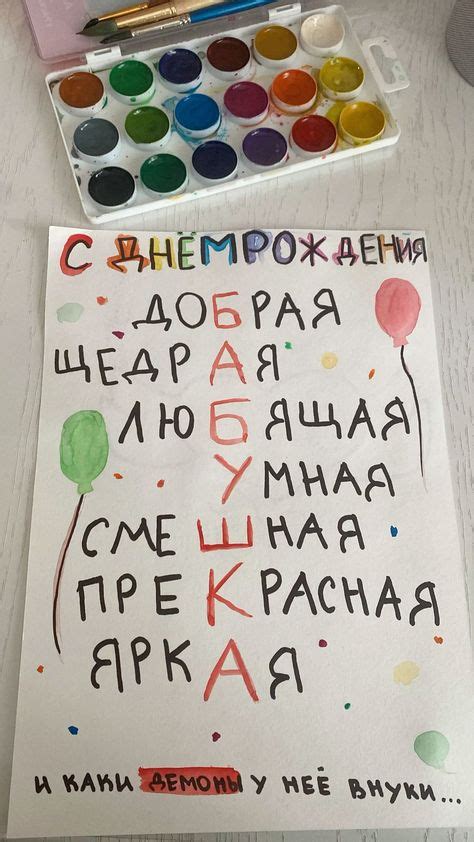 С ДНЁМ РОЖДЕНИЯ
ДОБРАЯ
ЩЕДРАЯ
ЛЮБЯЩАЯ
УМНАЯ
СМЕШНАЯ
ПРЕКРАСНАЯ
ЯРКАЯ
И КАКИ ДЕМОНЫ У НЕЁ ВНУКИ...